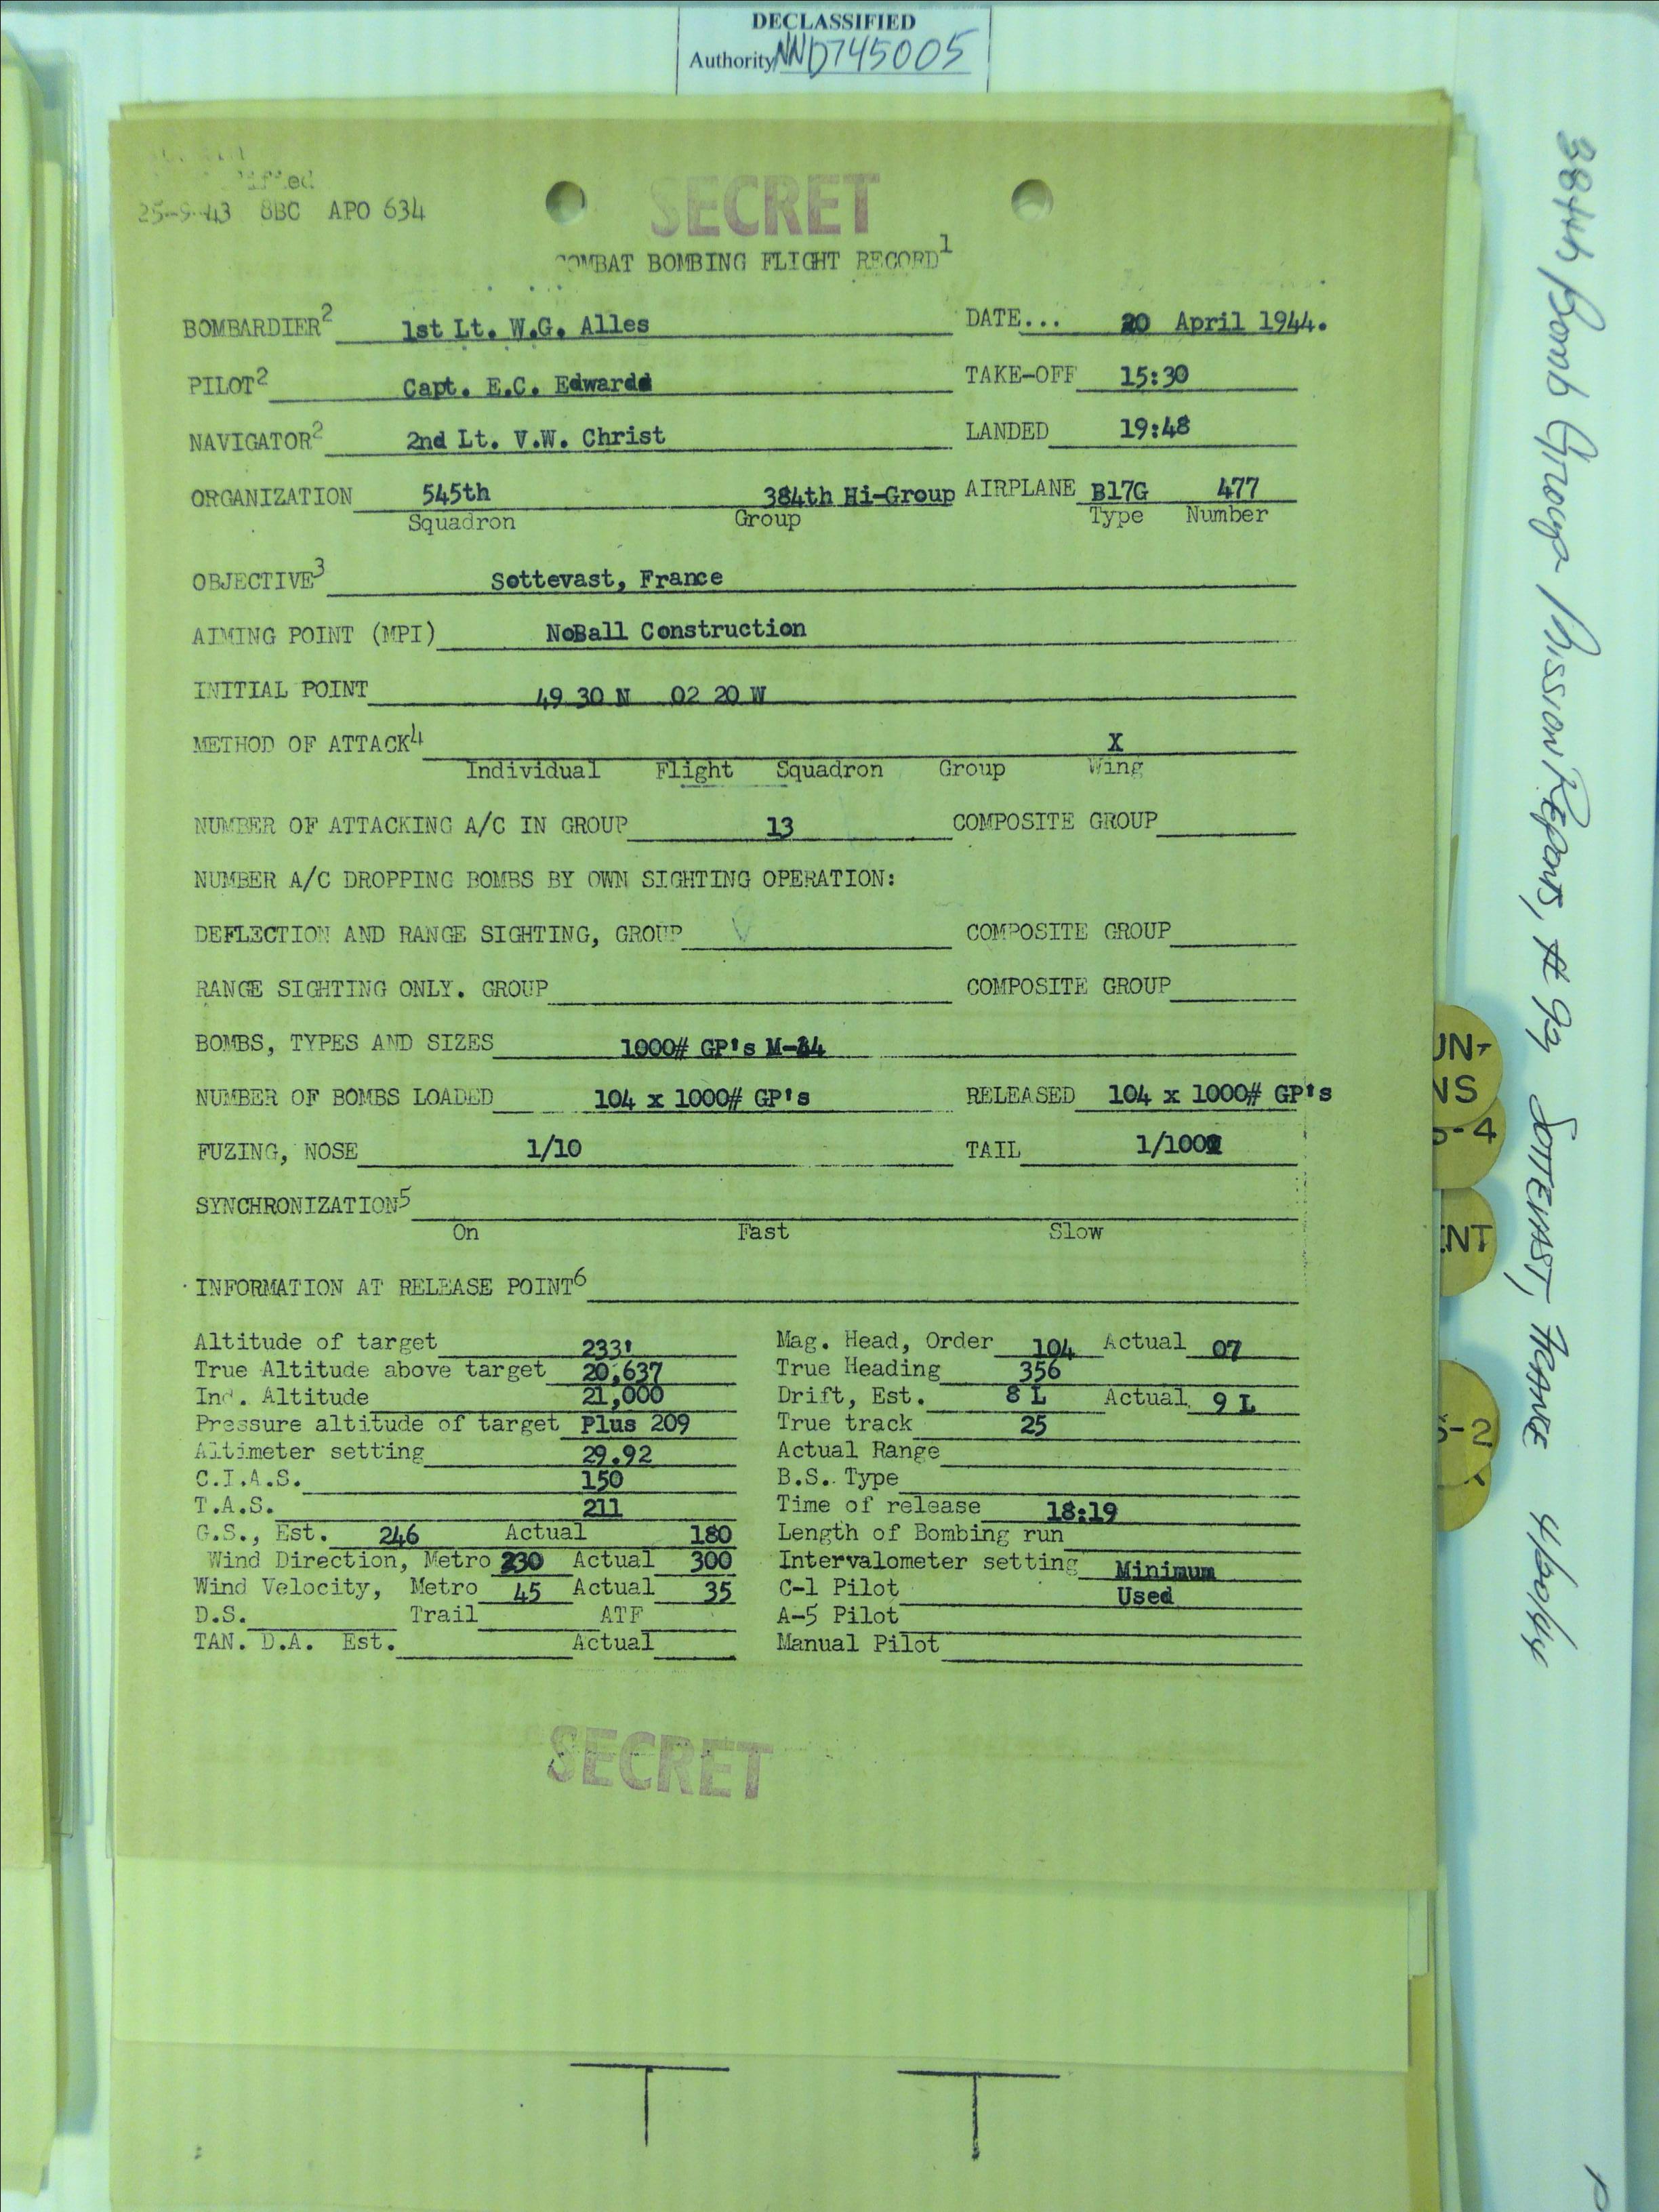 DECLASSIFIED
Authority NND745005
25-9-43 8BC APO 634
SECRET
COMBAT BOMBING FLIGHT RECORD1
BOMBARDIER2 1st Lt. W.G. Alles DATE... 20 April 1944.
PILOT2 Capt. E.C. Edwards TAKE-OFF 15:30
NAVIGATOR2 2nd Lt. V.W. Christ LANDED 19:48
ORGANIZATION 545th 384th Hi-Group AIRPLANE B17G 477
Squadron Group Type Number
OBJECTIVE3 Sottevast, France
AIMING POINT (MPI) NoBall Construction
INITIAL POINT 49 30 N 02 20 W
METHOD OF ATTACK4 X
Individual Flight Squadron Group Wing
NUMBER OF ATTACKING A/C IN GROUP 13 COMPOSITE GROUP
NUMBER A/C DROPPING BOMBS BY OWN SIGHTING OPERATION:
DEFLECTION AND RANGE SIGHTING, GROUP COMPOSITE GROUP
RANGE SIGHTING ONLY. GROUP COMPOSITE GROUP
BOMBS, TYPES AND SIZES 1000# GP's
NUMBER OF BOMBS LOADED 104 x 1000# GP's RELEASED 104 x 1000# GP's
FUZING, NOSE 1/10 TAIL 1/100
SYNCHRONIZATION5
On Fast Slow
INFORMATION AT RELEASE POINT6
Altitude of target 233' Mag. Head, Order 104 Actual 07
True Altitude above target 20,637 True Heading 356
Ind. Altitude 21,000 Drift, Est. 8 L Actual 9 L
Pressure altitude of target Plus 209 True track 25
Altimeter setting 29.92 Actual Range
C.I.A.S. 150 B.S. Type
T.A.S. 211 Time of release 18:19
G.S., Est. 246 Actual 180 Length of Bombing run
Wind Direction, Metro 230 Actual 300 Intervalometer setting Minimum
Wind Velocity, Metro 45 Actual 35 C-1 Pilot Used
D.S. Trail ATF A-5 Pilot
TAN. D.A. Est. Actual Manual Pilot
SECRET
384th Bomb Group Mission Reports, # 93 SOTTEVAST, FRANCE 4/20/44
NS
-4
ENT
-2